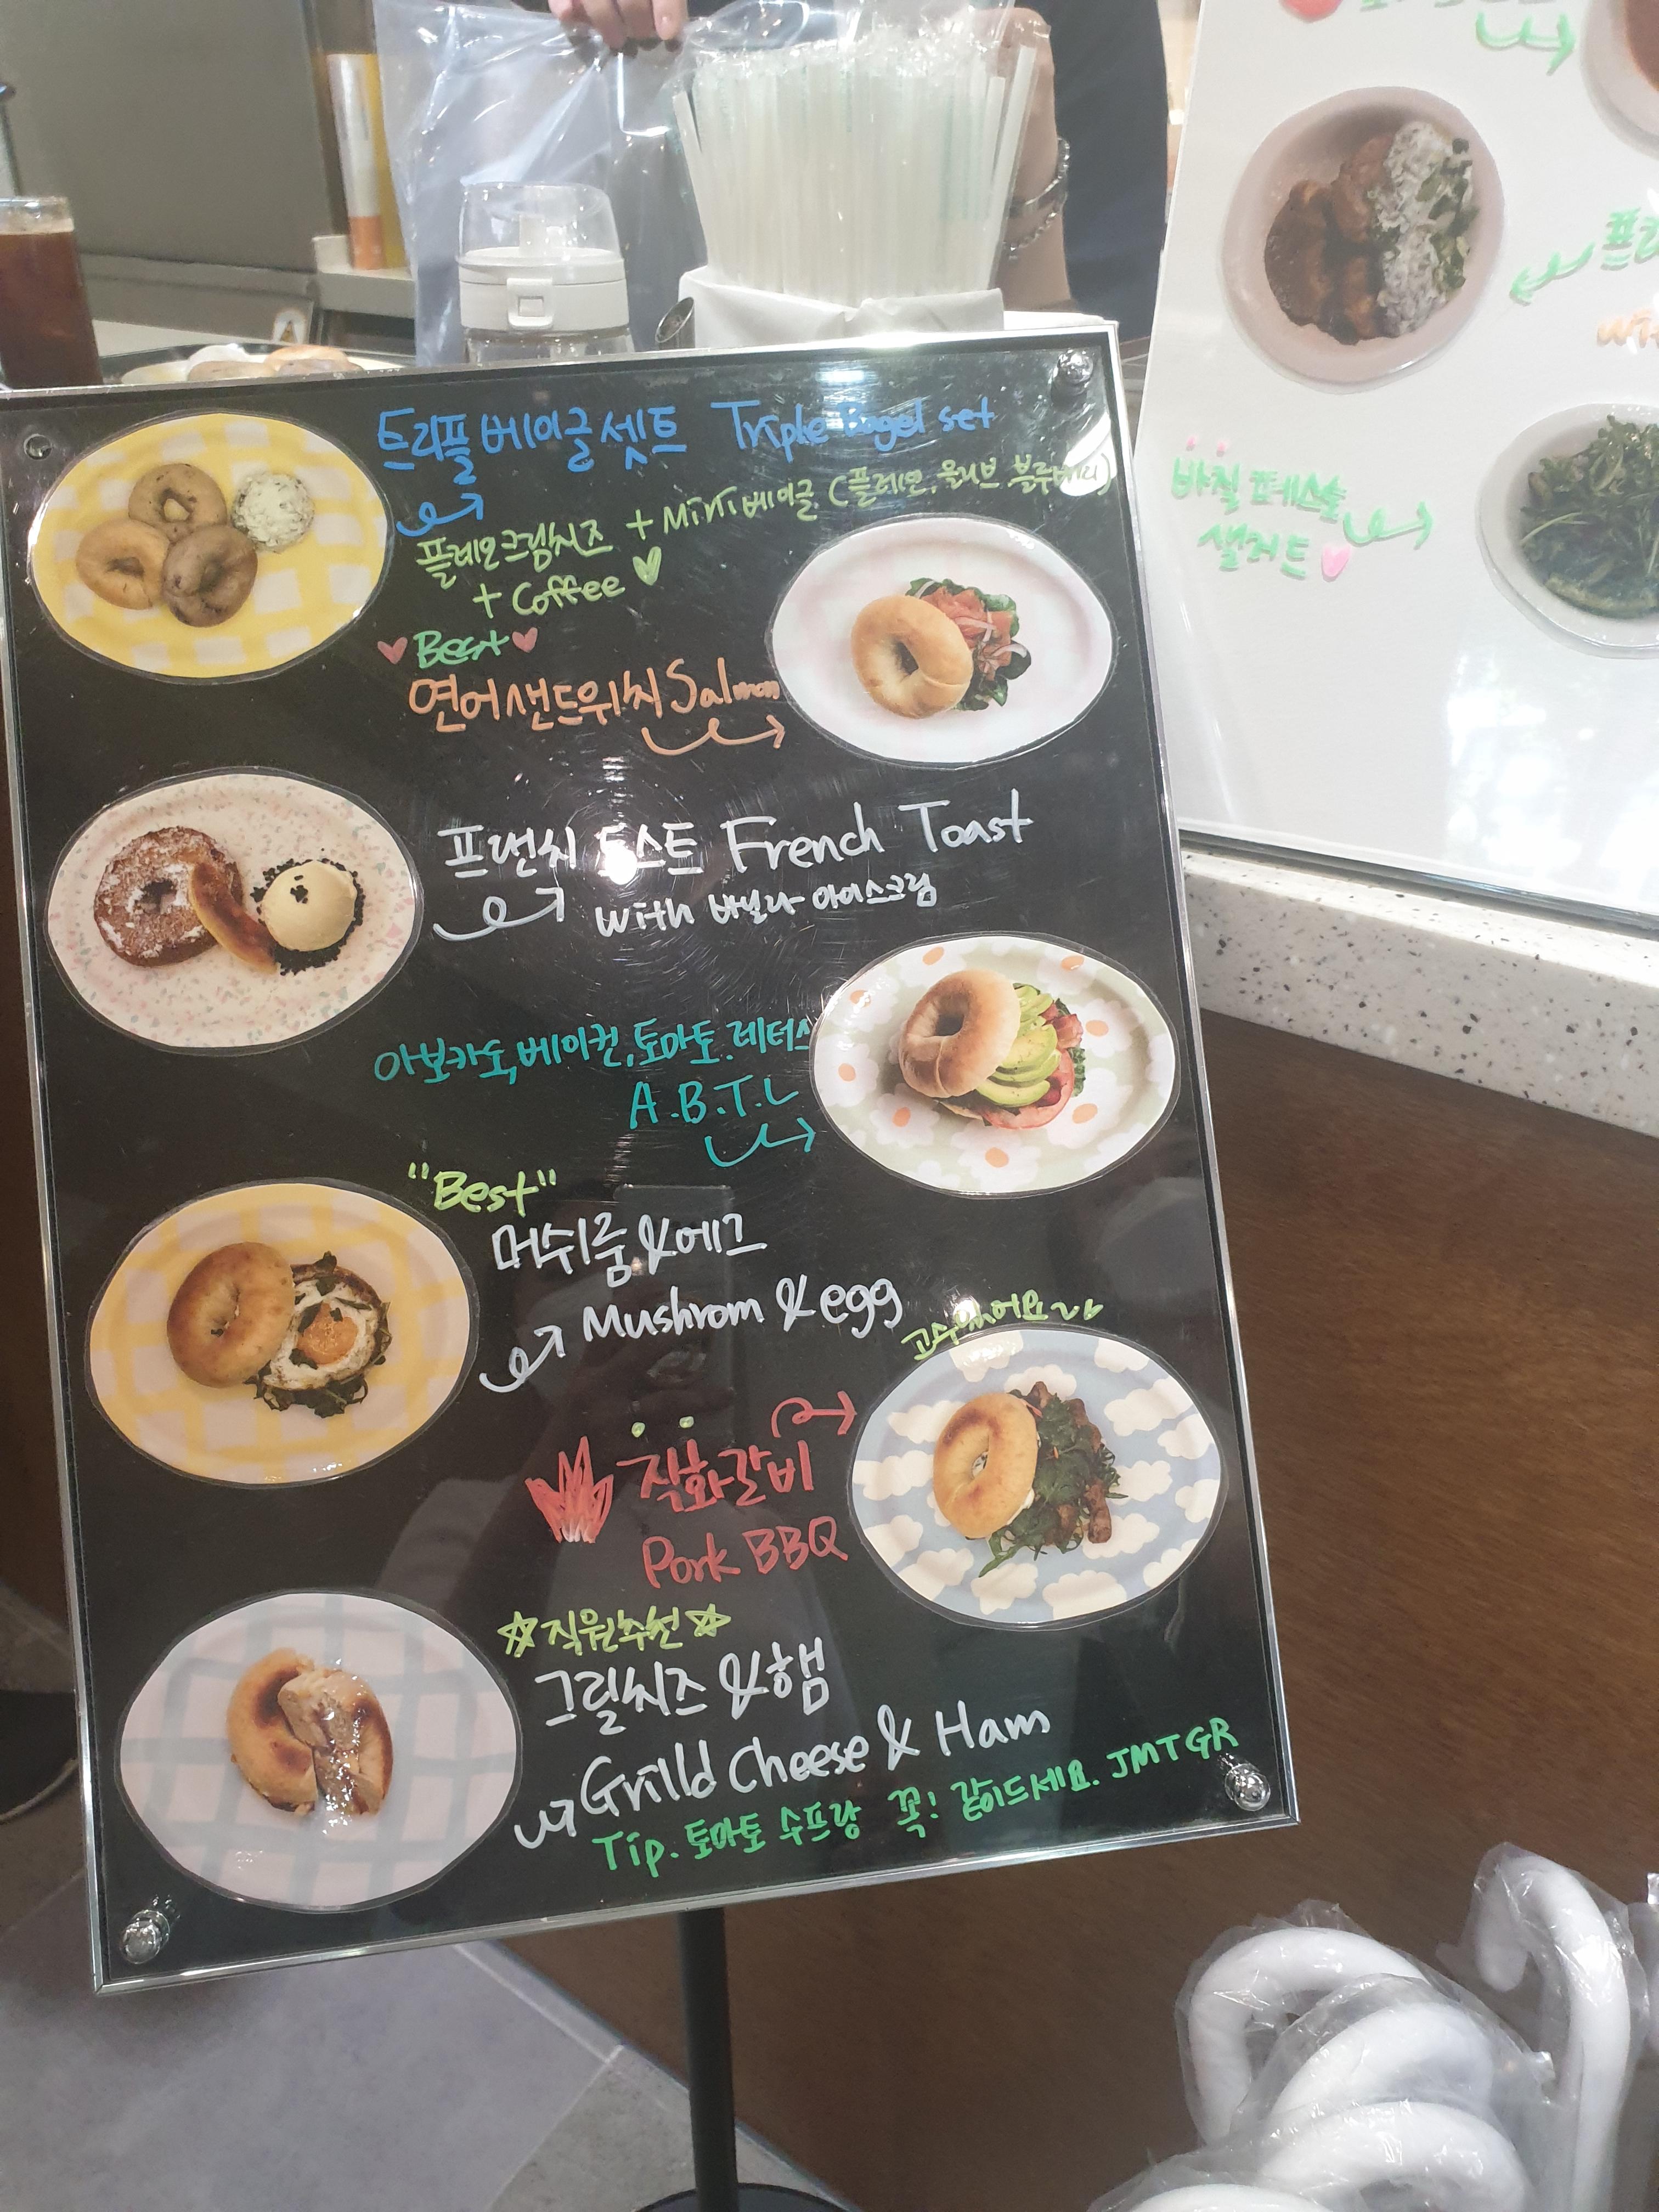 트리플 베이글 셋트 Triple Bagel set
플레인 크림치즈 + Mini 베이글 (플레인, 올리브 블루베리)
+ Coffee
Best
연어샌드위치 Salmon
프렌치 토스트 French Toast
with 바닐라 아이스크림
아보카도, 베이컨, 토마토. 레터스
A.B.T.L
"Best"
머쉬룸 & 에그
Mushrom & egg
고수있어요
직화갈비
Pork BBQ
☆직원추천☆
그릴치즈 & 햄
Grilld Cheese & Ham
Tip. 토마토 수프랑 꼭! 같이드세요. JMTGR
바질 페스토
샐러드